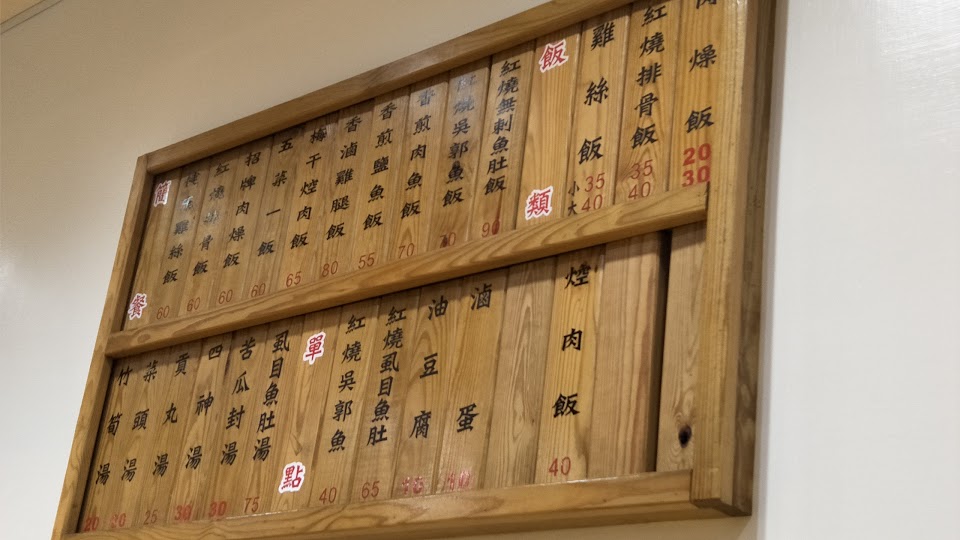 簡餐
雞絲飯 60
紅燒排骨飯 60
招牌肉燥飯 60
五菜一飯 60
梅干焢肉飯 65
香滷雞腿飯 80
香煎鹽魚飯 55
香煎肉魚飯 70
紅燒吳郭魚飯 70
紅燒無刺魚肚飯 90
飯類
雞絲飯 小35 大40
紅燒排骨飯 35 40
肉燥飯 20 30
竹筍湯 20
菜頭湯 20
貢丸湯 25
四神湯 30
苦瓜封湯 30
虱目魚肚湯 75
單點
紅燒吳郭魚 40
紅燒虱目魚肚 65
油豆腐
滷蛋
焢肉飯 40